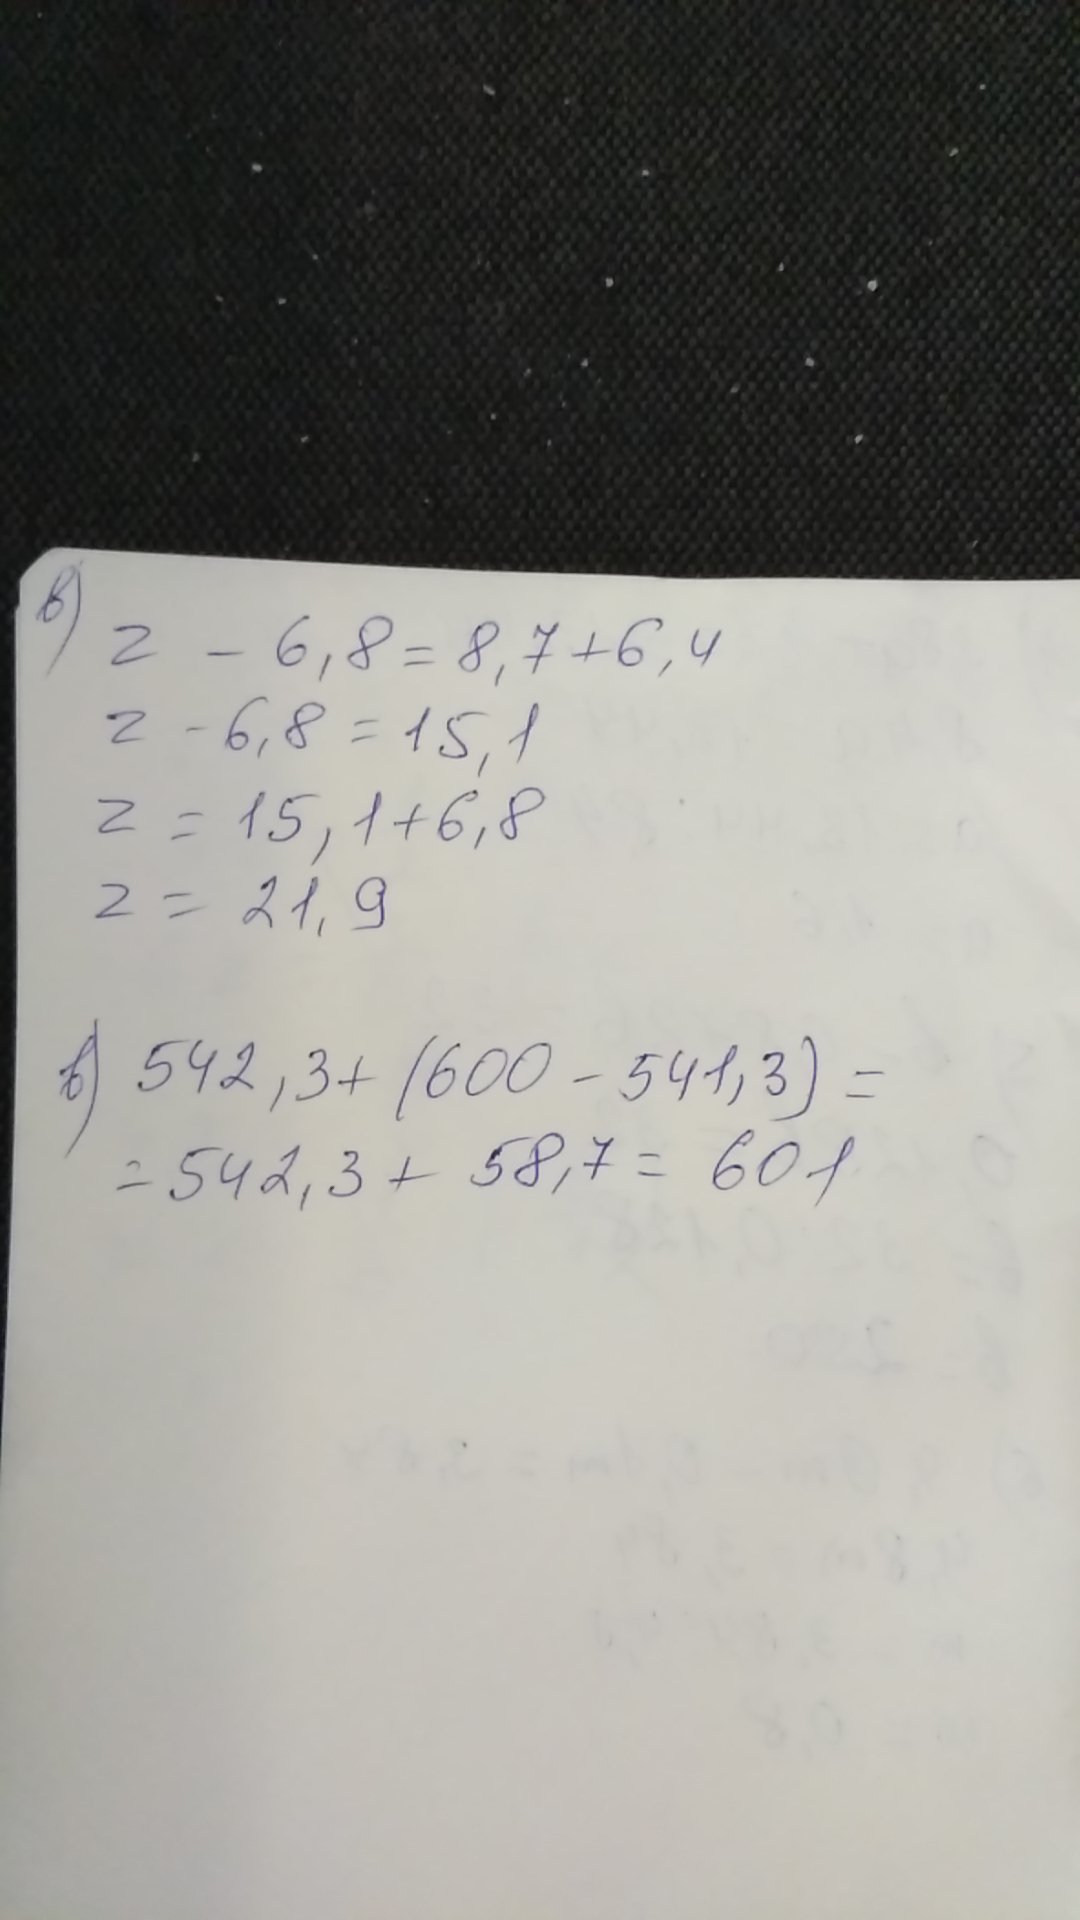 в) z - 6,8 = 8,7 + 6,4
z - 6,8 = 15,1
z = 15,1 + 6,8
z = 21,9
в) 542,3 + (600 - 541,3) =
= 542,3 + 58,7 = 601